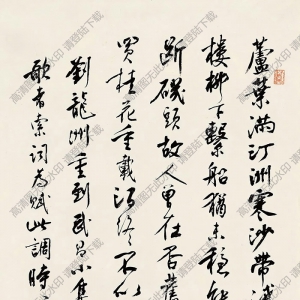 蘆葉滿汀洲寒沙帶淺
樓柳下繫船猶未穩能
斷磯頭故人曾在否舊
買桂花重載酒終不似
劉龍洲重到武昌小集
歌者索詞為賦此調時